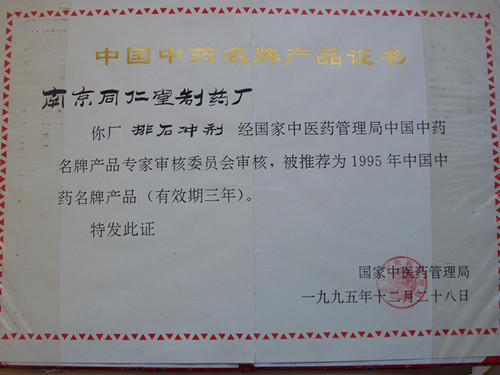 中国中药名牌产品证书
南京同仁堂制药厂
你厂 排石冲剂 经国家中医药管理局中国中药
名牌产品专家审核委员会审核，被推荐为1995年中国中
药名牌产品（有效期三年）。
特发此证
国家中医药管理局
一九九五年十二月二十八日